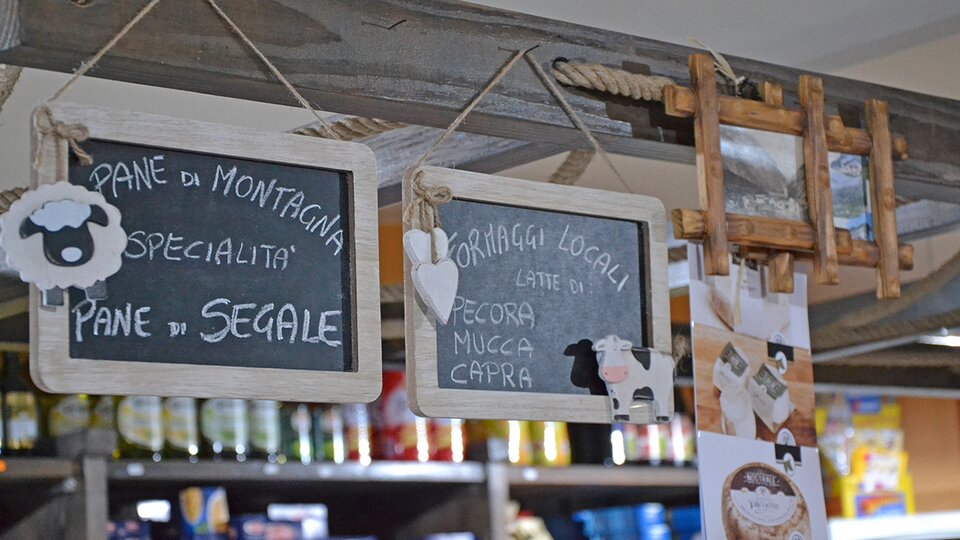 PANE DI MONTAGNA
SPECIALITA'
PANE DI SEGALE
FORMAGGI LOCALI
LATTE DI:
PECORA
MUCCA
CAPRA
NOSTRALE